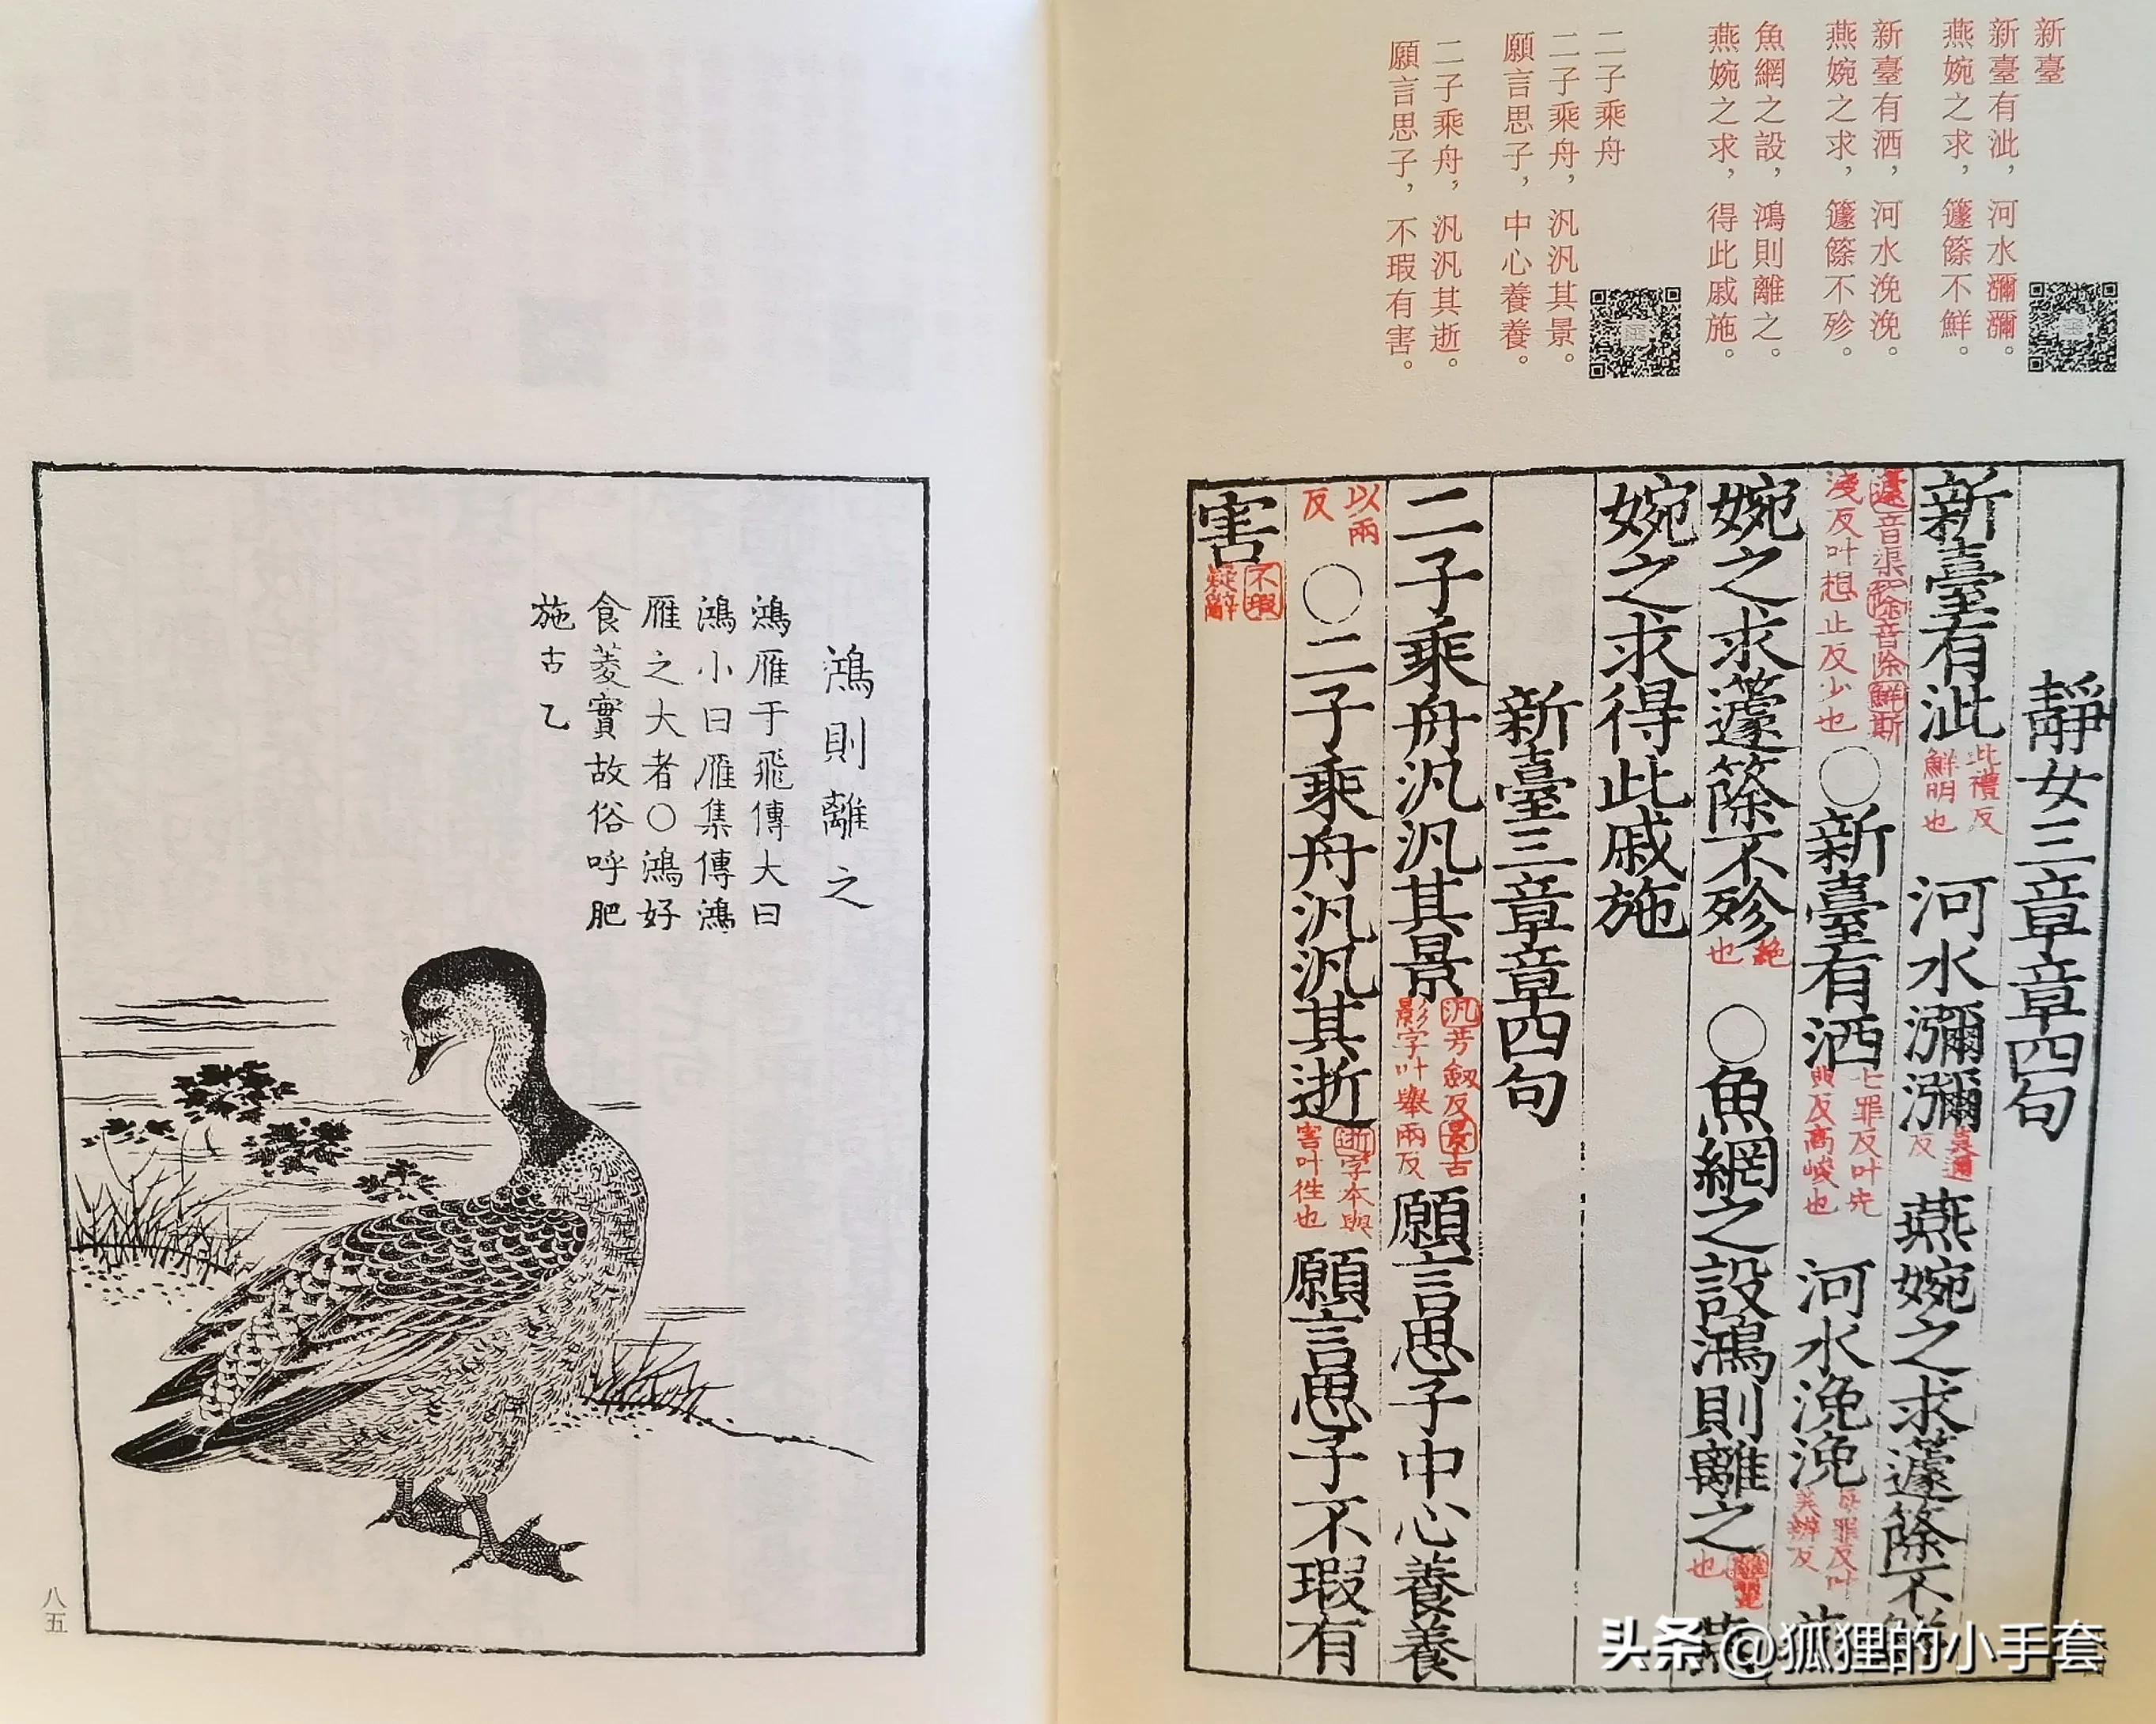 新臺
新臺有泚，河水瀰瀰。
燕婉之求，籧篨不鮮。
新臺有洒，河水浼浼。
燕婉之求，籧篨不殄。
魚網之設，鴻則離之。
燕婉之求，得此戚施。
二子乘舟
二子乘舟，汎汎其景。
願言思子，中心養養。
二子乘舟，汎汎其逝。
願言思子，不瑕有害。
靜女三章章四句
新臺有泚 此禮反 鮮明也 河水瀰瀰 莫邇 反 燕婉之求籧篨不鮮
籧音渠篨音除鮮斯 淺反叶想止反少也 ○新臺有洒 七罪反叶先 典反高峻也 河水浼浼 每罪反叶 美辨反 燕
婉之求籧篨不殄 絶 也 ○魚網之設鴻則離之 離麗 也 燕
婉之求得此戚施
新臺三章章四句
二子乘舟汎汎其景 汎芳劒反景古 影字叶舉兩反 願言思子中心養養
以兩 反 ○二子乘舟汎汎其逝 逝字本與 害叶徃也 願言思子不瑕有
害 不瑕 疑辭
鴻則離之
鴻雁于飛傳大曰
鴻小曰雁集傳鴻
雁之大者○鴻好
食菱實故俗呼肥
施古乙
八五
头条 @狐狸的小手套